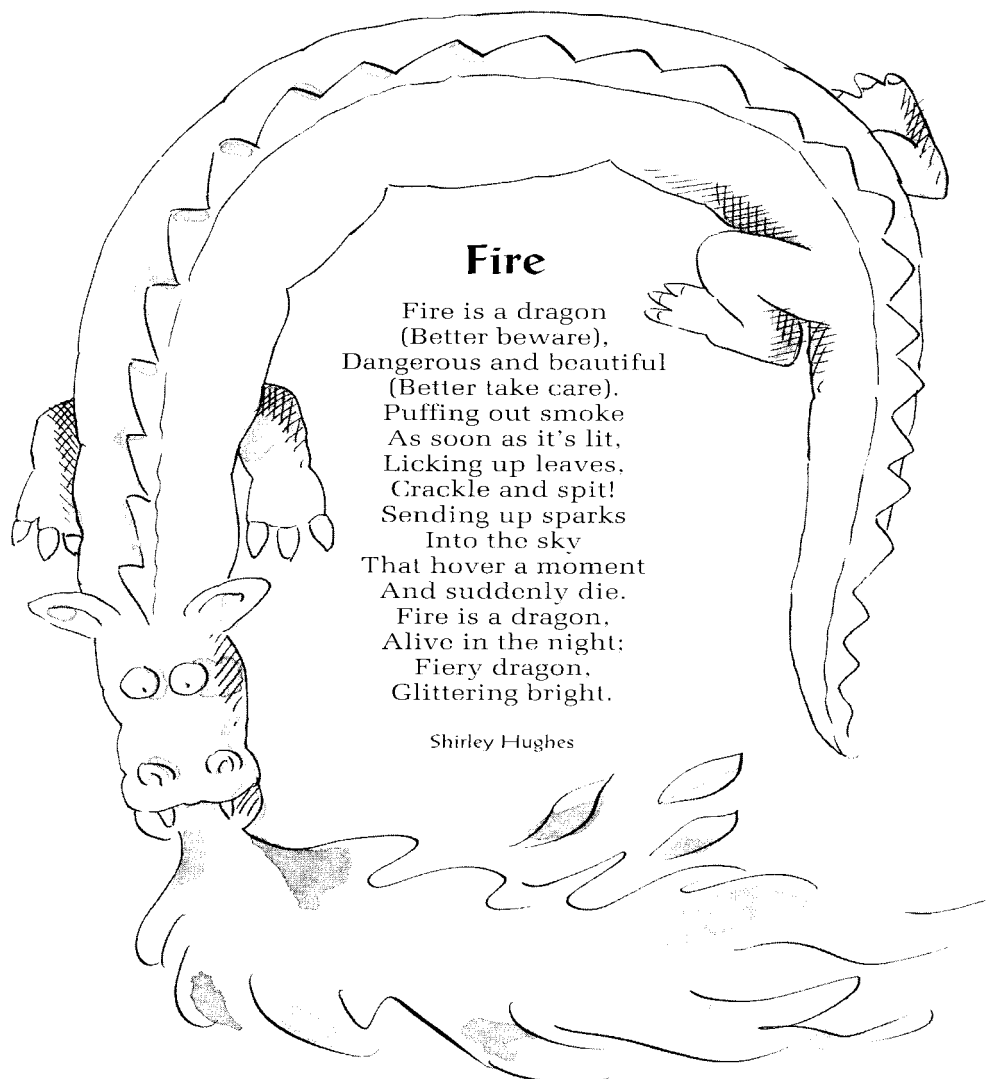 Fire
Fire is a dragon
(Better beware),
Dangerous and beautiful
(Better take care).
Puffing out smoke
As soon as it's lit,
Licking up leaves,
Crackle and spit!
Sending up sparks
Into the sky
That hover a moment
And suddenly die.
Fire is a dragon,
Alive in the night;
Fiery dragon,
Glittering bright.
Shirley Hughes